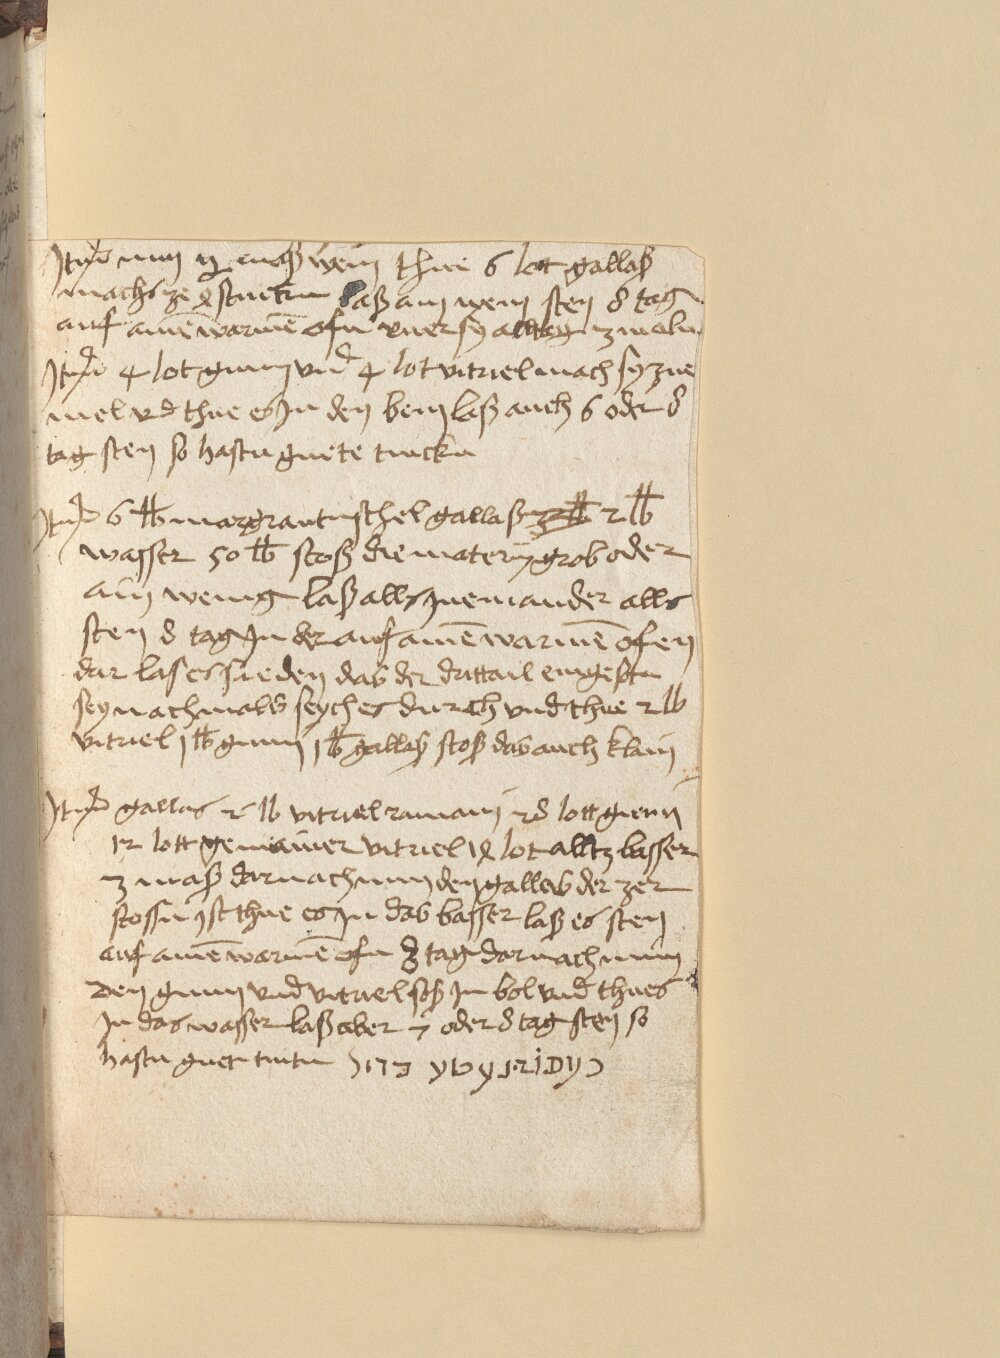 Item nim ij maß wein thue 6 lot gallaß
machs ze stucken laß am wein sten 8 tag
auf aimē warmē ofn ruer sy alltag 3 maln
Item 4 lot gumi vnd 4 lot vitriel mach sy zue
mel vnd thue es Jn den bein laß auch 6 oder 8
tag sten so hastu guete tinckn
Item 6 lb margrantnschel gallaß 2 lb
wasser 50 lb stoß die matery grob oder
ain wenig laß alls Jneinander alls
sten 8 tag Jn der auf aimē warmē ofen
dar las es sieden das der drittail eingesotn
sey nachmals seych es durch vnd thue 2 lb
vitriel 1 lb gumi 1 lb gallaß stoß das auch klain
Item gallas 2 lb vitriel ramani 28 lott gumi
12 lott gemainer vitriel 18 lot alltz basser
3 maß darnach nim den gallas der zer
stossn Jst thue es Jn das basser laß es sten
auf aimē warmē ofn 8 tag darnach nim
den gumi vnd vitriel stoß Jn bol vnd thues
Jn das wasser laß aber 7 oder 8 tag sten so
hastu guet tintn